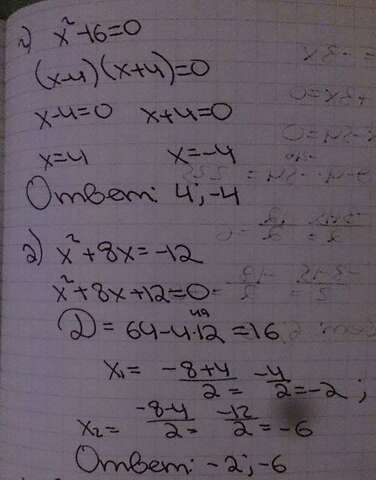 1) x²-16=0
(x-4)(x+4)=0
x-4=0 x+4=0
x=4 x=-4
Ответ: 4; -4
2) x²+8x=-12
x²+8x+12=0
D=64-4·12=16
x₁= -8+4/2= -4/2=-2;
x₂= -8-4/2= -12/2=-6
Ответ: -2; -6